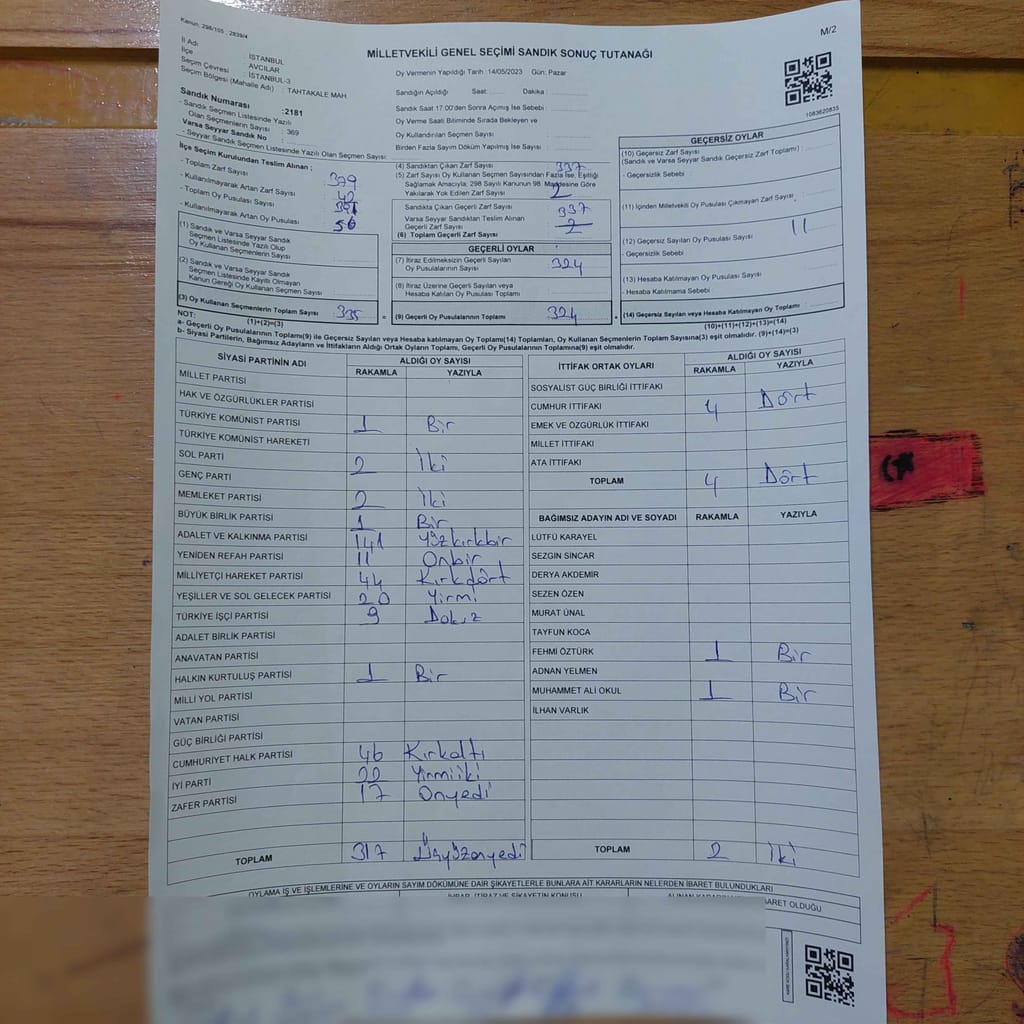 Kanun: 298/105 , 2839/4
M/2
MİLLETVEKİLİ GENEL SEÇİMİ SANDIK SONUÇ TUTANAĞI
İl Adı : İSTANBUL
İlçe : AVCILAR
Seçim Çevresi : İSTANBUL-3
Seçim Bölgesi (Mahalle Adı) : TAHTAKALE MAH.
Sandık Numarası : 2181
- Sandık Seçmen Listesinde Yazılı
Olan Seçmenlerin Sayısı : 369
Varsa Seyyar Sandık No :
- Seyyar Sandık Seçmen Listesinde Yazılı Olan Seçmen Sayısı:
İlçe Seçim Kurulundan Teslim Alınan ;
- Toplam Zarf Sayısı : 379
- Kullanılmayarak Artan Zarf Sayısı : 42
- Toplam Oy Pusulası Sayısı :
- Kullanılmayarak Artan Oy Pusulası : 56
Oy Vermenin Yapıldığı Tarih :14/05/2023 Gün: Pazar
Sandığın Açıldığı Saat: Dakika :
Sandık Saat 17:00'den Sonra Açımış İse Sebebi :
Oy Verme Saati Bitiminde Sırada Bekleyen ve
Oy Kullandırılan Seçmen Sayısı :
Birden Fazla Sayım Döküm Yapılmış İse Sayısı :
1083620835
(1) Sandık ve Varsa Seyyar Sandık
Seçmen Listesinde Yazılı Olup
Oy Kullanan Seçmenlerin Sayısı
(2) Sandık ve Varsa Seyyar Sandık
Seçmen Listesinde Kayıtlı Olmayan
Kanun Gereği Oy Kullanan Seçmen Sayısı
(3) Oy Kullanan Seçmenlerin Toplam Sayısı 335
(1)+(2)=(3)
(4) Sandıktan Çıkan Zarf Sayısı 337
(5) Zarf Sayısı Oy Kullanan Seçmen Sayısından Fazla İse, Eşitliği
Sağlamak Amacıyla; 298 Sayılı Kanunun 98. Maddesine Göre
Yakılarak Yok Edilen Zarf Sayısı 2
Sandıkta Çıkan Geçerli Zarf Sayısı 337
Varsa Seyyar Sandıktan Teslim Alınan
Geçerli Zarf Sayısı 2
(6) Toplam Geçerli Zarf Sayısı
GEÇERLİ OYLAR
(7) İtiraz Edilmeksizin Geçerli Sayılan
Oy Pusulalarının Sayısı 324
(8) İtiraz Üzerine Geçerli Sayılan veya
Hesaba Katılan Oy Pusulası Toplamı
(9) Geçerli Oy Pusulalarının Toplamı 324
GEÇERSİZ OYLAR
(10) Geçersiz Zarf Sayısı
(Sandık ve Varsa Seyyar Sandık Geçersiz Zarf Toplamı) :
- Geçersizlik Sebebi :
(11) İçinden Milletvekili Oy Pusulası Çıkmayan Zarf Sayısı
(12) Geçersiz Sayılan Oy Pusulası Sayısı 11
- Geçersizlik Sebebi :
(13) Hesaba Katılmayan Oy Pusulası Sayısı
- Hesaba Katılmama Sebebi :
(14) Geçersiz Sayılan veya Hesaba Katılmayan Oy Toplamı
(10)+(11)+(12)+(13)=(14)
NOT:
a- Geçerli Oy Pusulalarının Toplamı(9) ile Geçersiz Sayılan veya Hesaba katılmayan Oy Toplam(14) Toplamları, Oy Kullanan Seçmenlerin Toplam Sayısına(3) eşit olmalıdır. (9)+(14)=(3)
b- Siyasi Partilerin, Bağımsız Adayların ve İttifakların Aldığı Ortak Oyların Toplamı, Geçerli Oy Pusulalarının Toplamına(9) eşit olmalıdır.
SİYASİ PARTİNİN ADI ALDIĞI OY SAYISI
RAKAMLA YAZIYLA
MİLLET PARTİSİ
HAK VE ÖZGÜRLÜKLER PARTİSİ
TÜRKİYE KOMÜNİST PARTİSİ 1 Bir
TÜRKİYE KOMÜNİST HAREKETİ
SOL PARTİ 2 İki
GENÇ PARTİ
MEMLEKET PARTİSİ 2 İki
BÜYÜK BİRLİK PARTİSİ 1 Bir
ADALET VE KALKINMA PARTİSİ 141 Yüzkırkbir
YENİDEN REFAH PARTİSİ 11 Onbir
MİLLİYETÇİ HAREKET PARTİSİ 44 Kırkdört
YEŞİLLER VE SOL GELECEK PARTİSİ 20 Yirmi
TÜRKİYE İŞÇİ PARTİSİ 9 Dokuz
ADALET BİRLİK PARTİSİ
ANAVATAN PARTİSİ
HALKIN KURTULUŞ PARTİSİ 1 Bir
MİLLİ YOL PARTİSİ
VATAN PARTİSİ
GÜÇ BİRLİĞİ PARTİSİ
CUMHURİYET HALK PARTİSİ 46 Kırkaltı
İYİ PARTİ 22 Yirmiiki
ZAFER PARTİSİ 17 Onyedi
TOPLAM 317 Üçyüzonyedi
İTTİFAK ORTAK OYLARI ALDIĞI OY SAYISI
RAKAMLA YAZIYLA
SOSYALİST GÜÇ BİRLİĞİ İTTİFAKI
CUMHUR İTTİFAKI 4 Dört
EMEK VE ÖZGÜRLÜK İTTİFAKI
MİLLET İTTİFAKI
ATA İTTİFAKI
TOPLAM 4 Dört
BAĞIMSIZ ADAYIN ADI VE SOYADI RAKAMLA YAZIYLA
LÜTFÜ KARAYEL
SEZGIN SINCAR
DERYA AKDEMIR
SEZEN ÖZEN
MURAT ÜNAL
TAYFUN KOCA
FEHMI ÖZTÜRK 1 Bir
ADNAN YELMEN
MUHAMMET ALI OKUL 1 Bir
İLHAN VARLIK
TOPLAM 2 İki
OYLAMA İŞ VE İŞLEMLERİNE VE OYLARIN SAYIM DÖKÜMÜNE DAİR ŞİKAYETLERLE BUNLARA AİT KARARLARIN NELERDEN İBARET BULUNDUKLARI